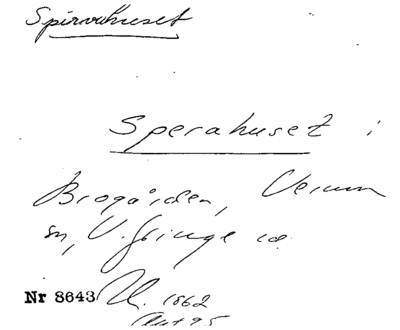 Spirrahuset
Sperahuset i
Brogården, Verum
sn, V. Göinge hd.
Nr 8643 U. 1862